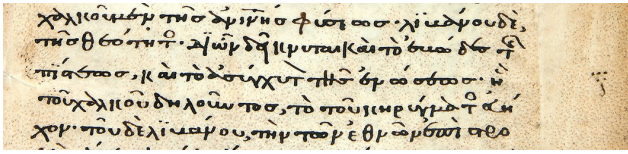 χαλκοῦ μὲν τῆς ἀνίνης φύσεως· λιβάνου δὲ,
τῆς θεότητος· δι' ὧν δείκνυται καὶ τὸ εὐῶδες τῆς
πίστεως, καὶ τὸ ἀσύγχυτον τῆς ἑνώσεως· ἢ
τοῦ χαλκοῦ δηλοῦντος, τὸ τοῦ κηρύγματος εὔη
χον· τοῦ δὲ λιβάνου, τὴν τῶν ἐθνῶν ἐπιστρο